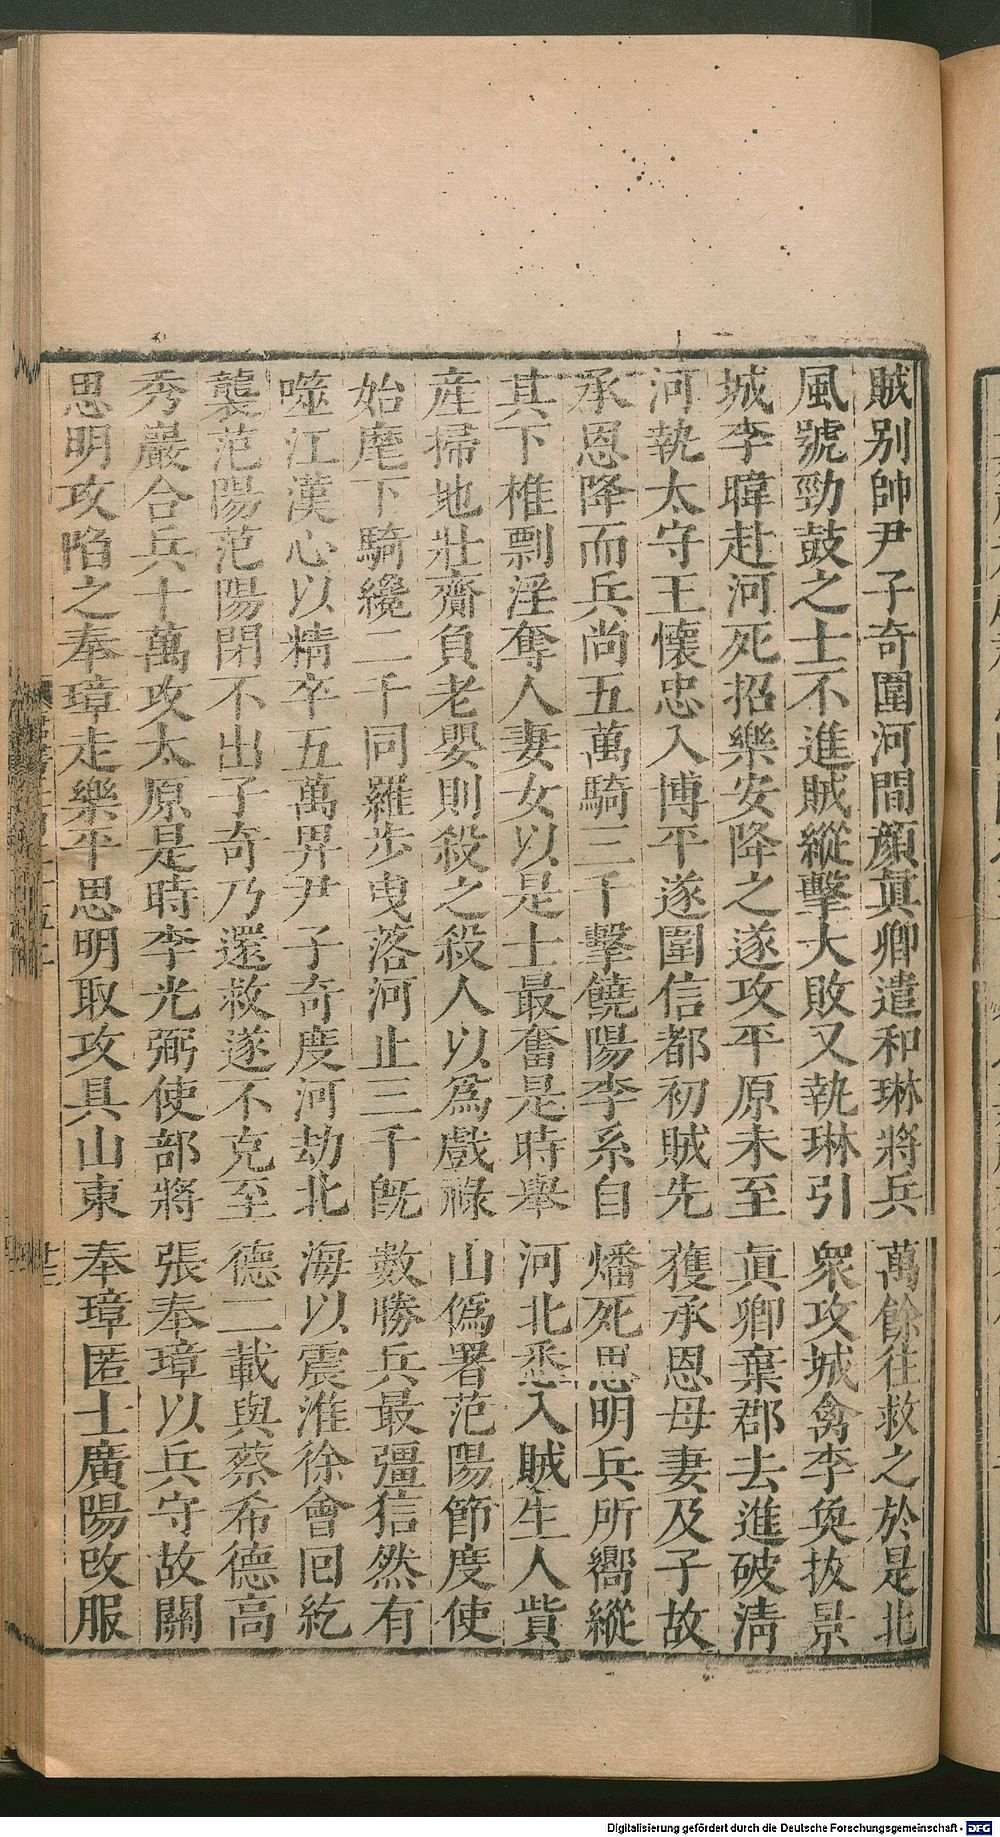 賊别帥尹子奇圍河間顔眞卿遣和琳將兵萬餘往救之於是北
風號勁鼓之士不進賊縱擊大敗又執琳引衆攻城禽李奐拔景
城李暐赴河死招樂安降之遂攻平原未至眞卿棄郡去進破淸
河執太守王懷忠入博平遂圍信都初賊先獲承恩母妻及子故
承恩降而兵尚五萬騎三千擊饒陽李系自燔死思明兵所嚮縱
其下椎剽淫奪人妻女以是士最奮是時舉河北悉入賊生人貲
産掃地壯齎負老嬰則殺之殺人以爲戲祿山僞署范陽節度使
始麾下騎纔二千同羅步曳落河止三千旣數勝兵最彊信然有
噬江漢心以精卒五萬畀尹子奇度河劫北海以震淮徐會囘紇
襲范陽范陽閉不出子奇乃還救遂不克至德二載與蔡希德高
秀巖合兵十萬攻太原是時李光弼使部將張奉璋以兵守故關
思明攻陷之奉璋走樂平思明取攻具山東奉璋匿士廣陽改服
Digitalisierung gefördert durch die Deutsche Forschungsgemeinschaft - DFG